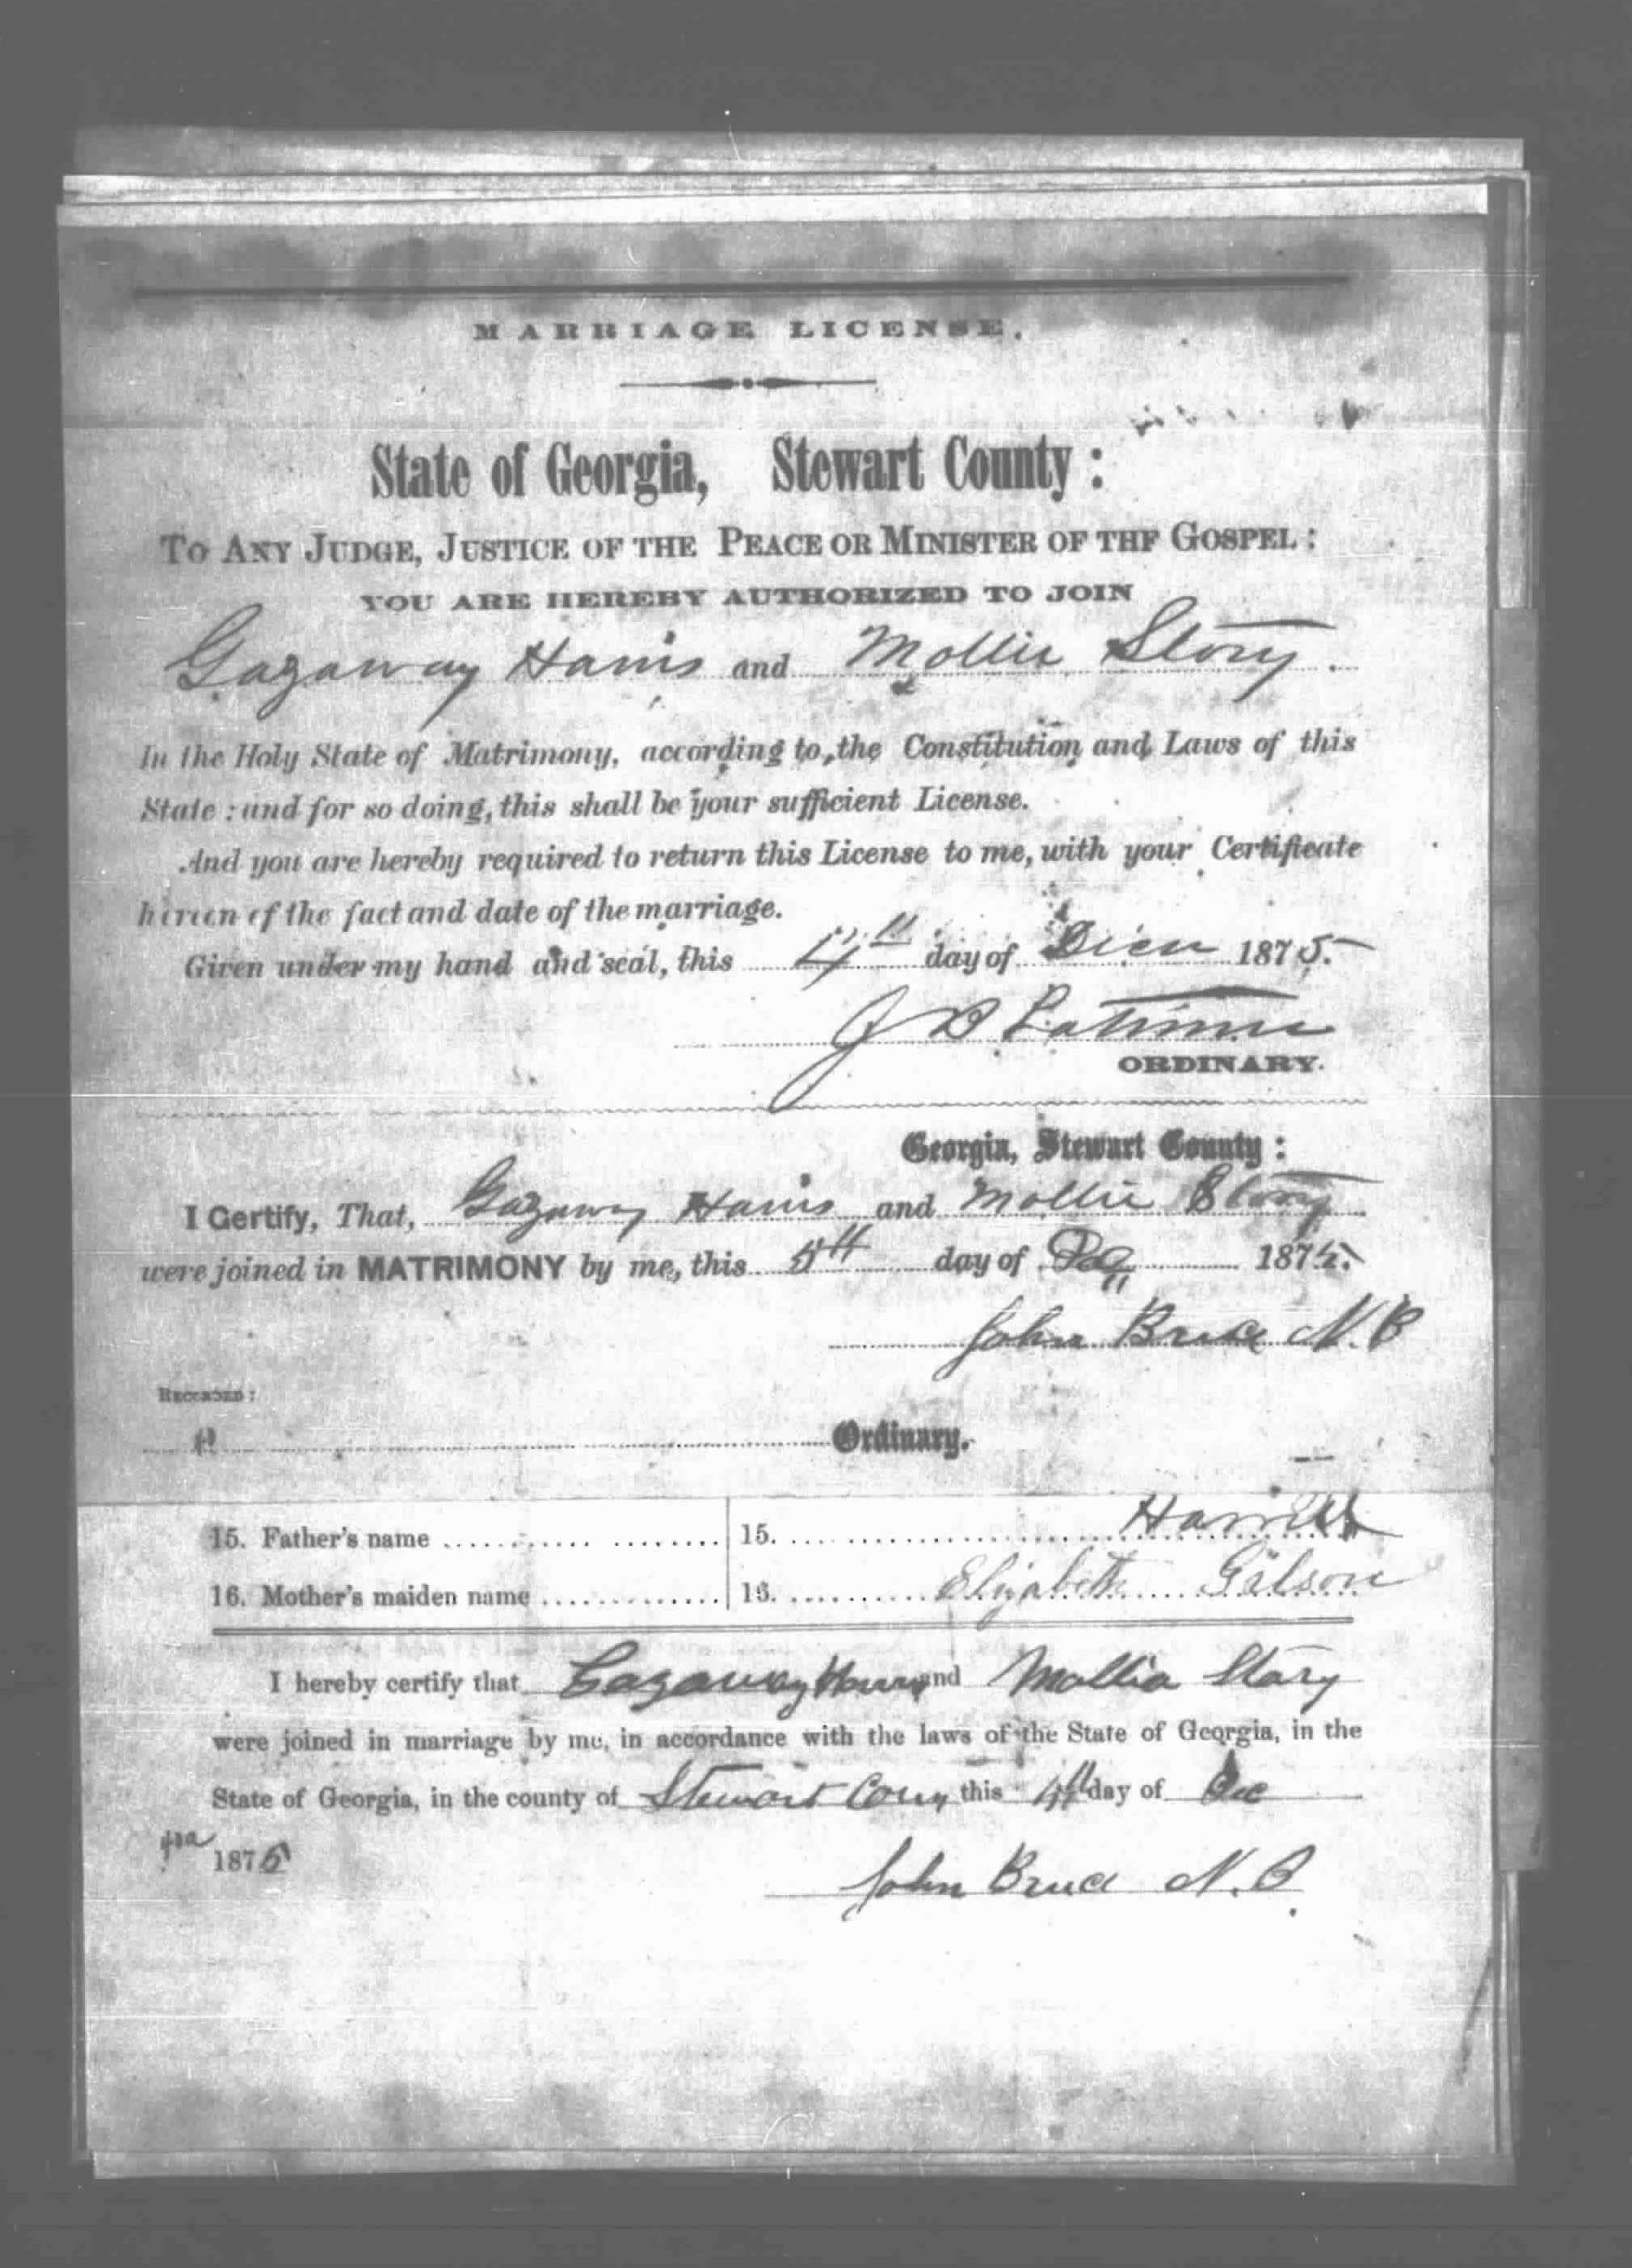 MARRIAGE LICENSE.
State of Georgia, Stewart County :
TO ANY JUDGE, JUSTICE OF THE PEACE OR MINISTER OF THE GOSPEL :
YOU ARE HEREBY AUTHORIZED TO JOIN
Gazaway Harris and Mollie Story.
In the Holy State of Matrimony, according to, the Constitution and Laws of this
State : and for so doing, this shall be your sufficient License.
And you are hereby required to return this License to me, with your Certificate
hereon of the fact and date of the marriage.
Given under my hand and seal, this 4th day of 1875.
J B Latimer
ORDINARY.
Georgia, Stewart County :
I Certify, That, Gazaway Harris and Mollie Story
were joined in MATRIMONY by me, this 5th day of 1875
John Bruce N.P
RECORDED :
Ordinary.
15. Father's name 15.
16. Mother's maiden name 16. Elizabeth
I hereby certify that Gazaway Harris and Mollia Story
were joined in marriage by me, in accordance with the laws of the State of Georgia, in the
State of Georgia, in the county of Stewart this day of Dec
1875
John Bruce N.P